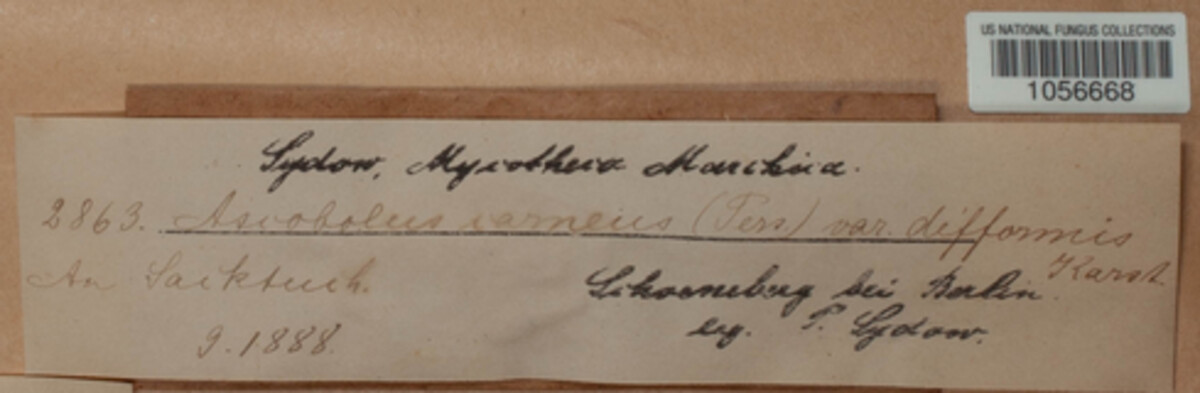 US NATIONAL FUNGUS COLLECTIONS
1056668
Sydow, Mycotheca Marchica.
2863. Ascobolus carneus (Pers) var. difformis
Karst.
An Sacktuch.
Schoeneberg bei Berlin.
9. 1888.
leg. P. Sydow.